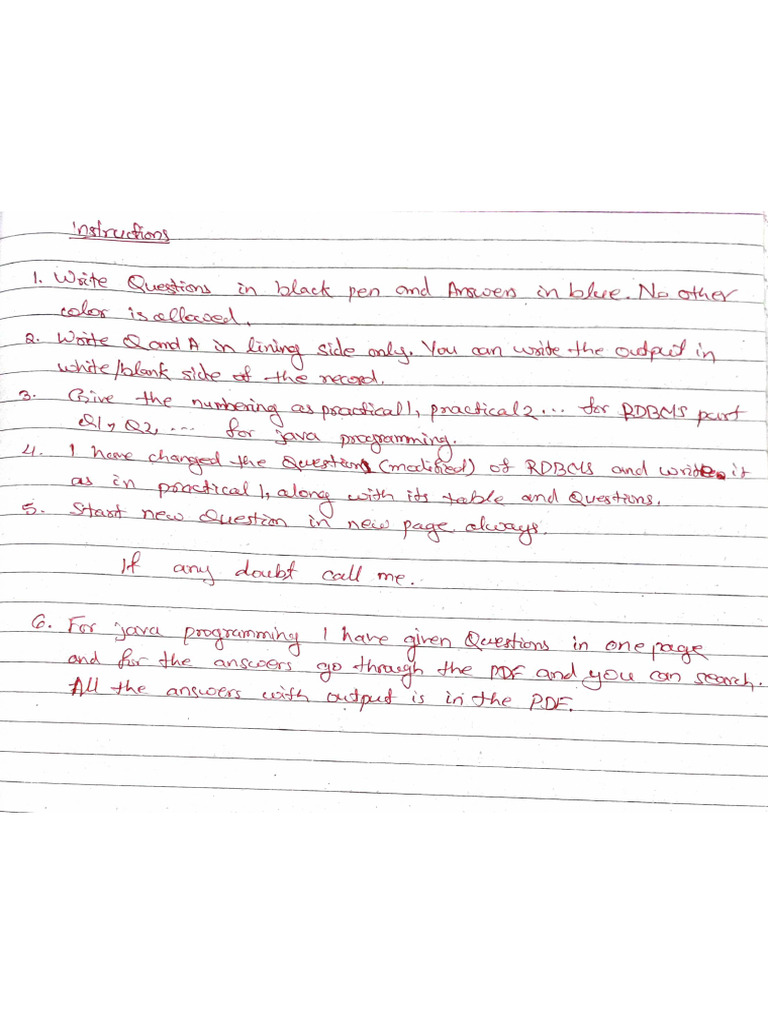 Instructions
1. Write Questions in black pen and Answers in blue. No other
color is allowed.
2. Write Q and A in lining side only. You can write the output in
white/blank side of the record.
3. Give the numbering as practical 1, practical 2 ... for RDBMS part
Q1, Q2, ... for java programming.
4. I have changed the Question (modified) of RDBMS and write it
as in practical 1, along with its table and Questions.
5. Start new Question in new page always.
If any doubt call me.
6. For java programming I have given Questions in one page
and for the answers go through the PDF and you can search.
All the answers with output is in the PDF.